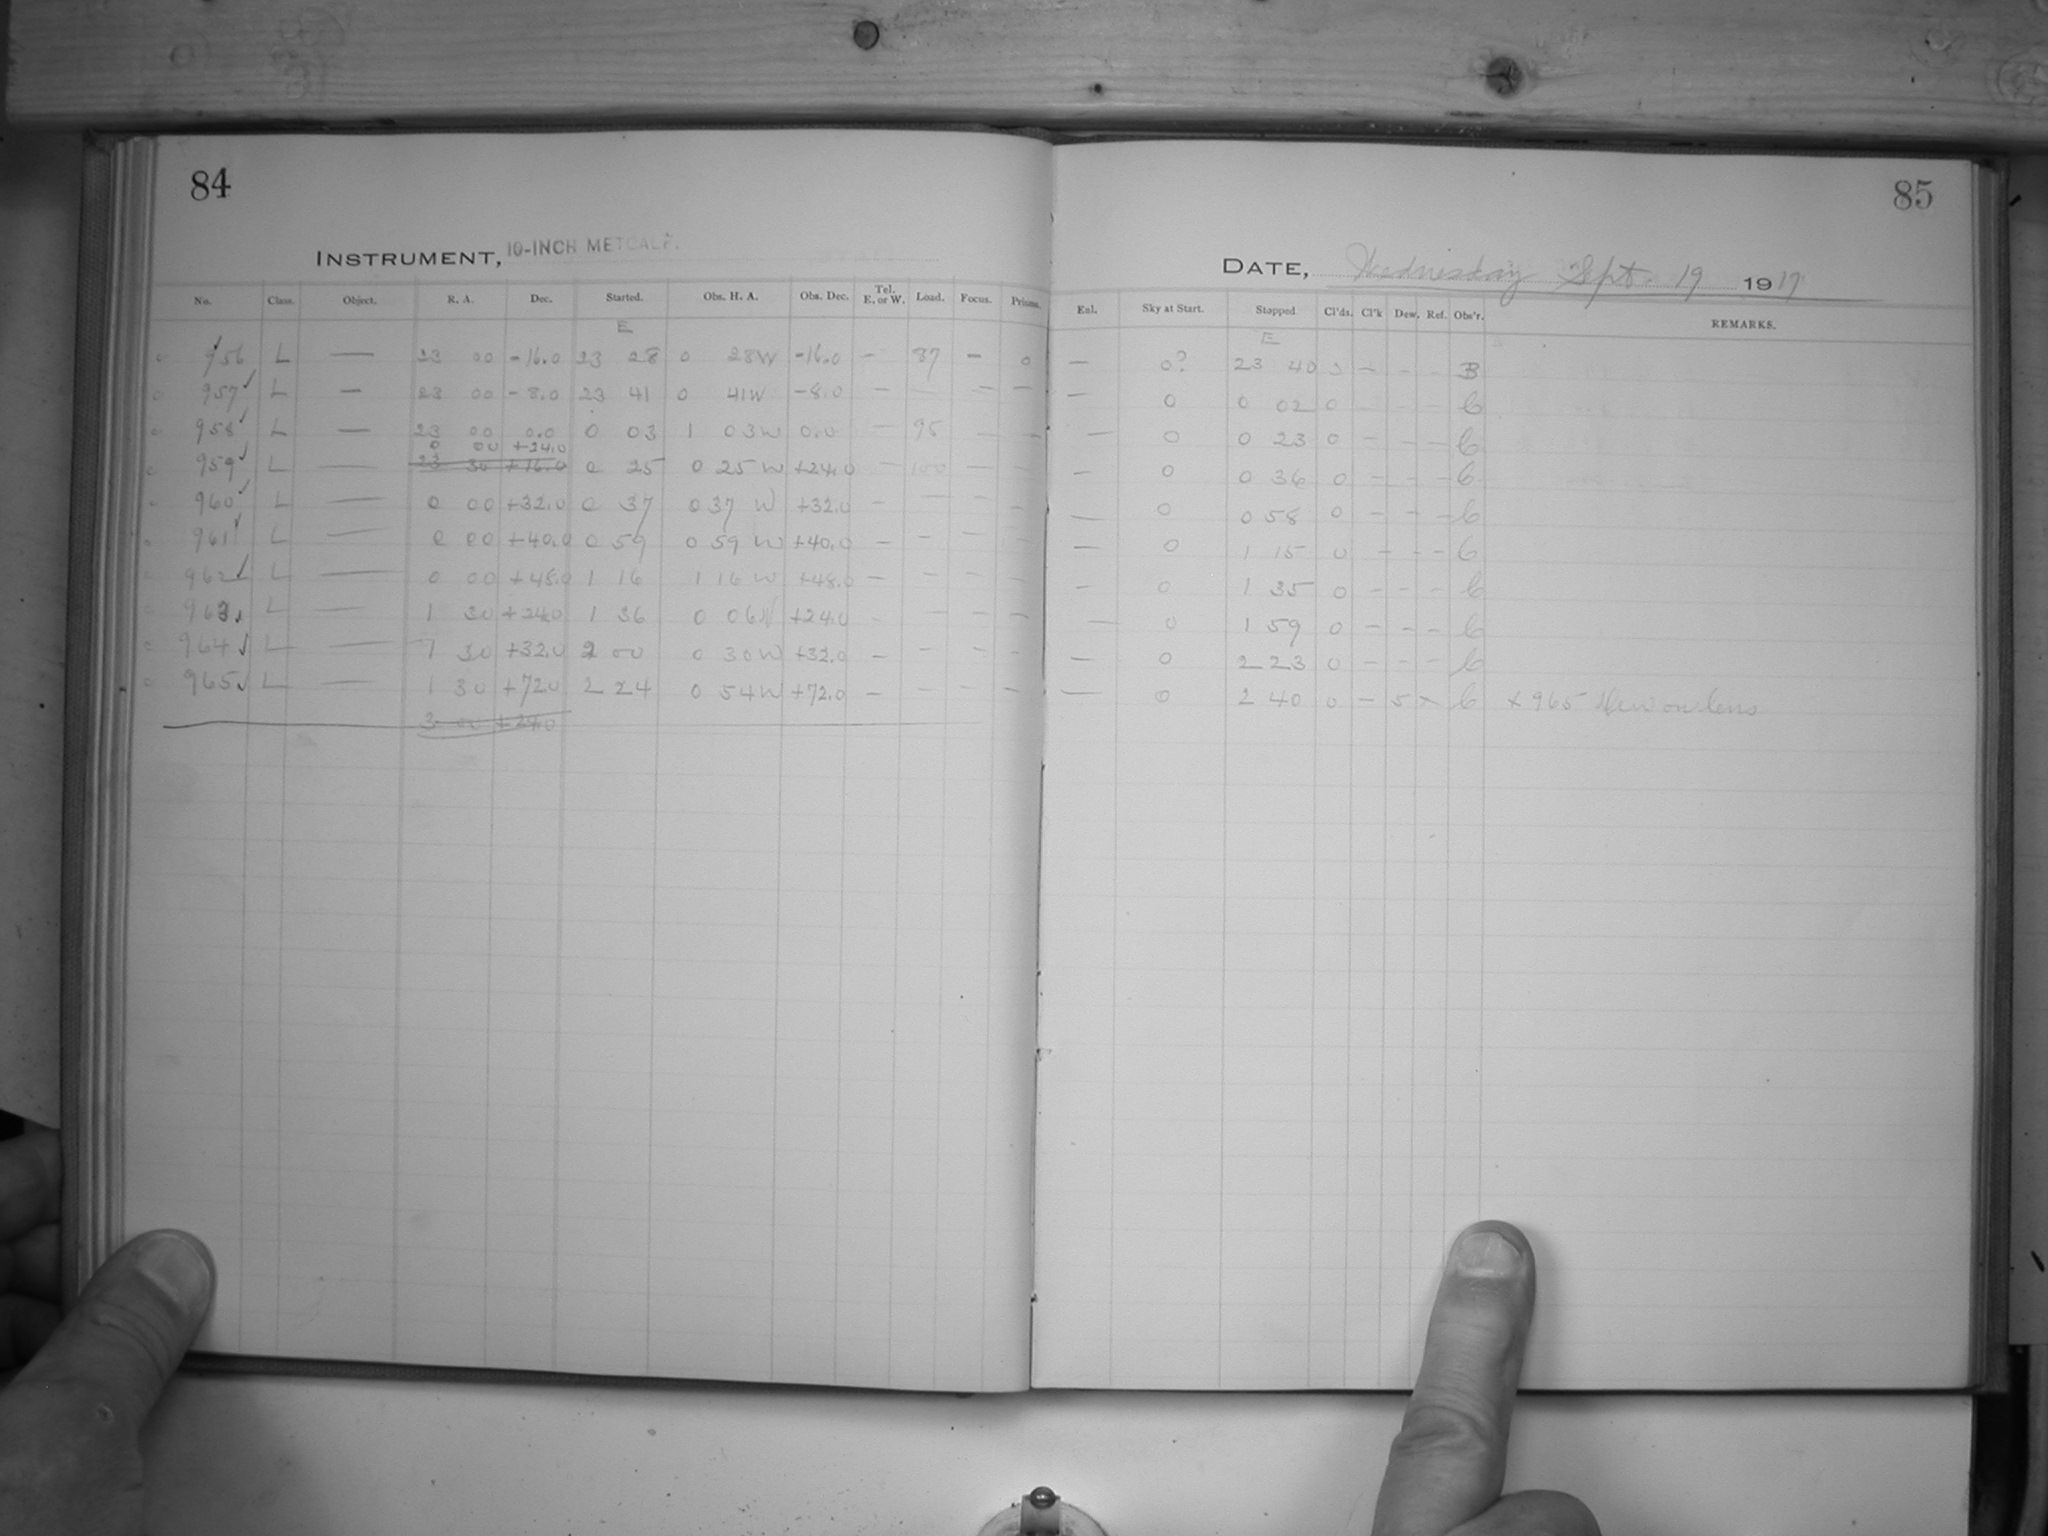 84
INSTRUMENT, 10-INCH METCALF.
No. Class. Object. R. A. Dec. Started. Obs. H. A. Obs. Dec. Tel. E. or W. Load. Focus. Prisms.
E
956 L — 23 00 -16.0 23 28 0 28W -16.0 — 87 — 0
957 L — 23 00 -8.0 23 41 0 41W -8.0 — — —
958 L — 23 00 0.0 0 03 1 03W 0.0 — 95 — —
0 00 +24.0
959 L — 23 30 +16.0 0 25 0 25 W +24.0 — 100 — —
960 L — 0 00 +32.0 0 37 0 37 W +32.0 — — — —
961 L — 0 00 +40.0 0 59 0 59 W +40.0 — — — —
962 L — 0 00 +48.0 1 16 1 16 W +48.0 — — — —
963 L — 1 30 +24.0 1 36 0 06W +24.0 - — — —
964 L — 1 30 +32.0 2 00 0 30W +32.0 — — — —
965 L — 1 30 +72.0 2 24 0 54W +72.0 — — — —
3 00 +24.0
85
DATE, Wednesday Sept. 19 1917
Enl. Sky at Start. Stopped Cl'ds. Cl'k Dew. Ref. Obs'r. REMARKS.
E
— 0? 23 40 0 — - - B
— 0 0 02 0 - - - C
— 0 0 23 0 - - - C
— 0 0 36 0 - - - C
— 0 0 58 0 - - - C
— 0 1 15 0 - - - C
— 0 1 35 0 - - - C
— 0 1 59 0 - - - C
— 0 2 23 0 - - - C
— 0 2 40 0 — 5 x C x 965 Dew on lens